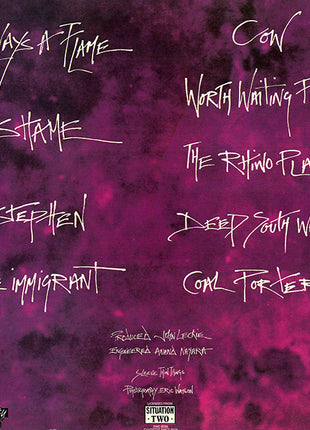 AYS A FLAME
SHAME
STEPHEN
E IMMIGRANT
COW
WORTH WAITING F
THE RHINO PLA
DEEP SOUTH W
COAL PORTER
PRODUCED JOHN LECKIE
ENGINEERED
SLEEVE
PHOTOGRAPHY ERIC WATSON
SITUATION
TWO